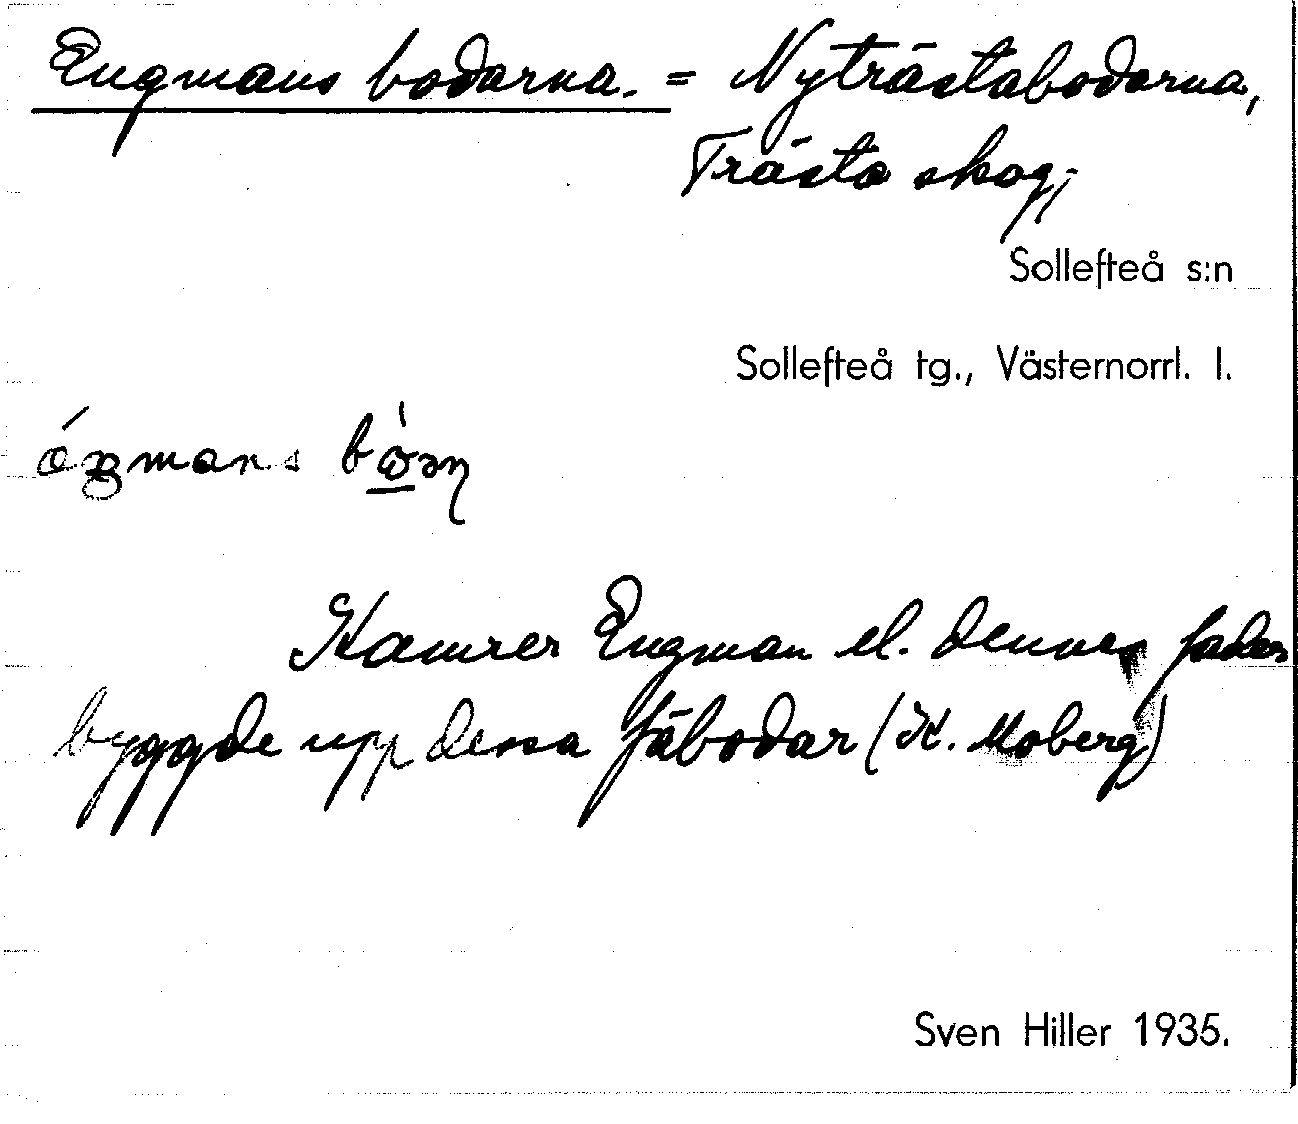 Engmans bodarna. = Nyträstabodarna,
Trästa skog,
Sollefteå s:n
Sollefteå tg., Västernorrl. l.
Kamrer Engman el. dennes fader
byggde upp dessa fäbodar (K. Moberg)
Sven Hiller 1935.